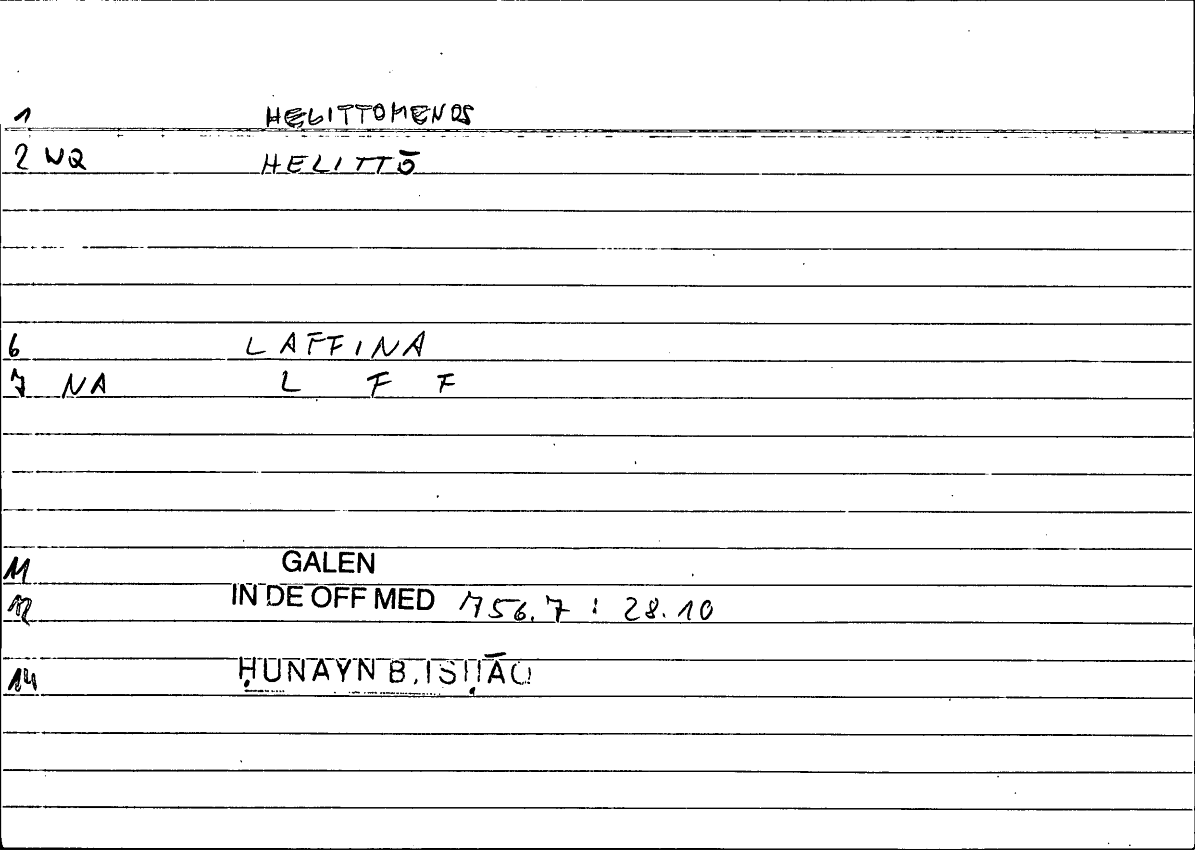 1 HELITTOMENOS
2 WQ HELITTŌ
6 LAFFINA
7 NA L F F
11 GALEN
12 IN DE OFF MED 756.7 : 28.10
14 ḤUNAYN B. ISḤĀQ